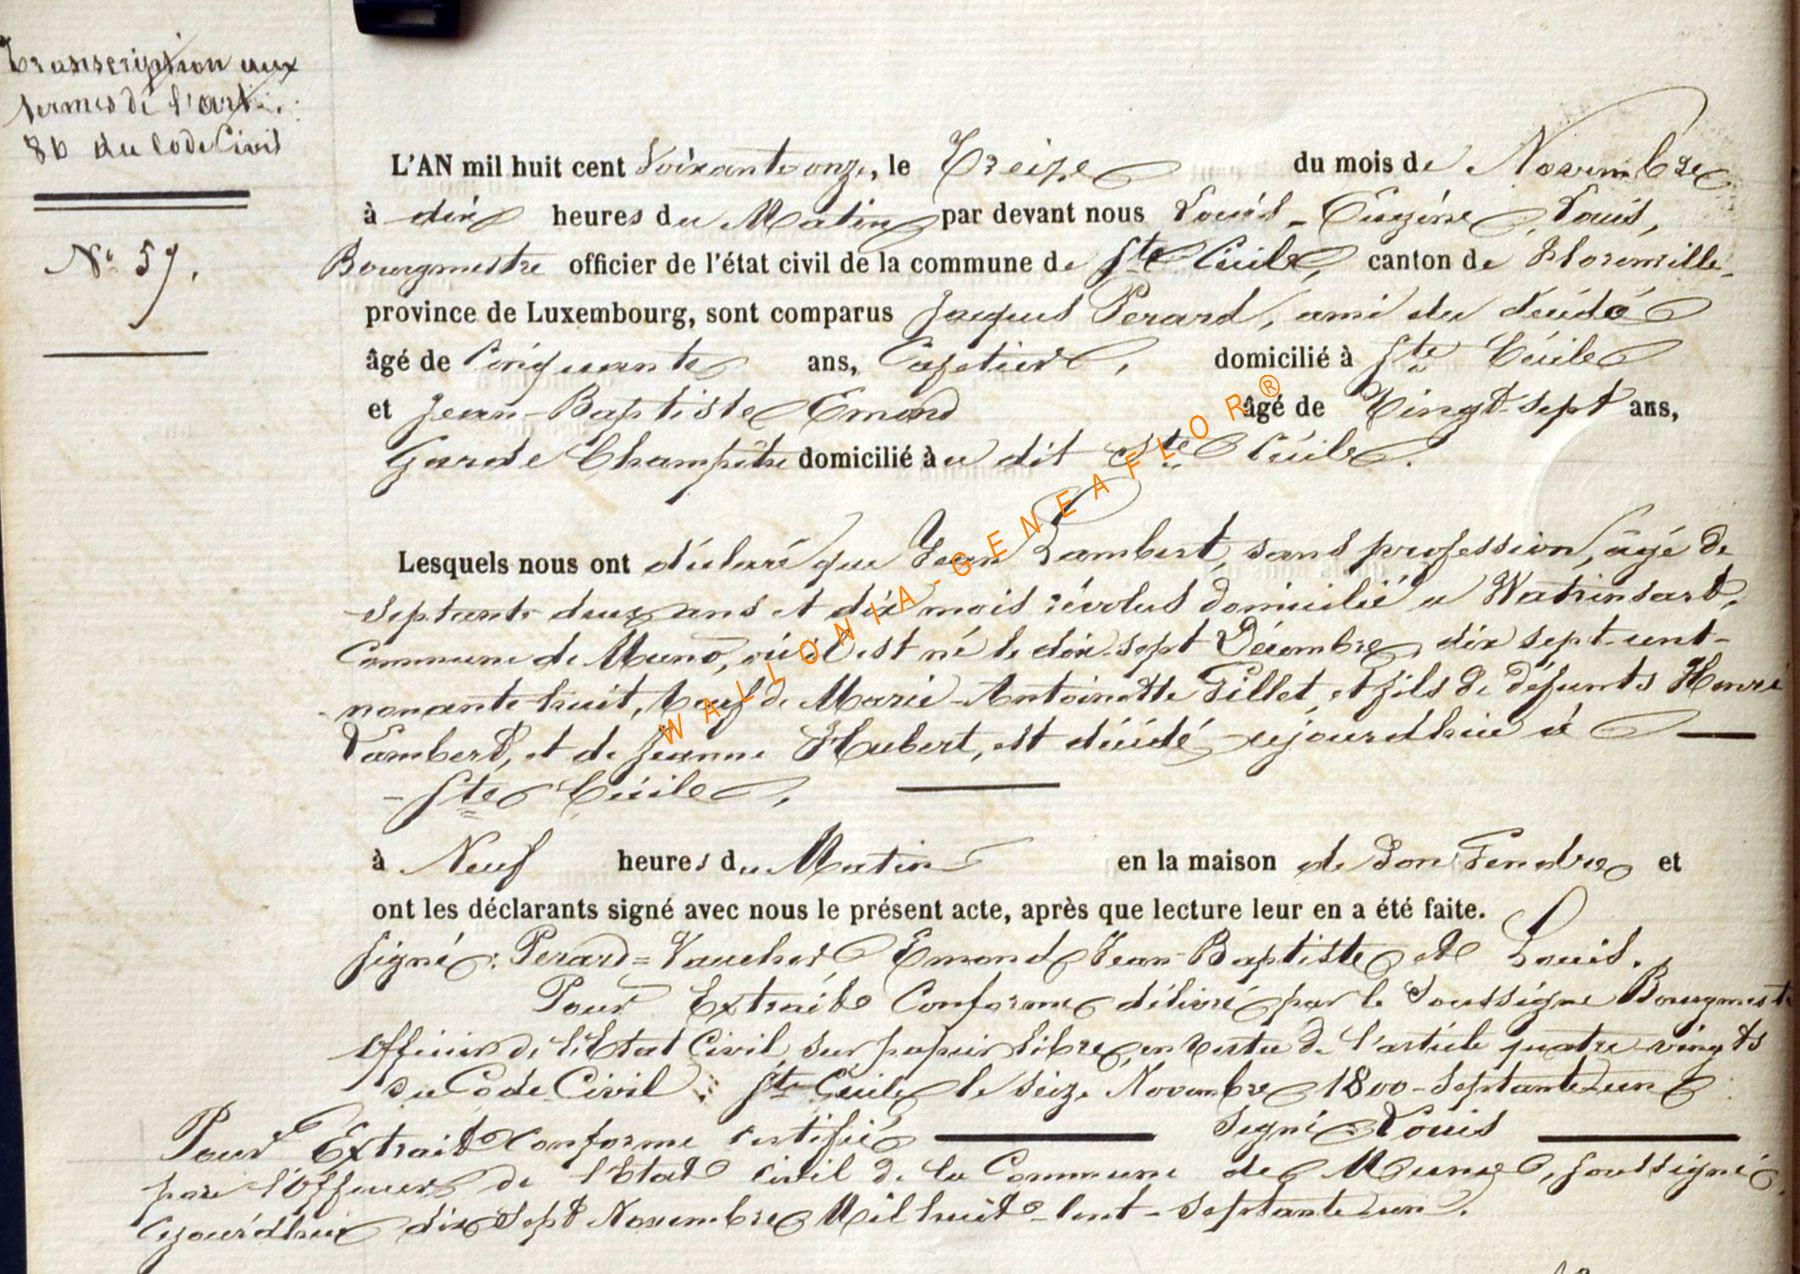 Transcription aux
termes de l'art.
80 du Code Civil
N° 57.
L'AN mil huit cent Soixante onze, le Treize du mois de Novembre
à dix heures du Matin par devant nous Louis-Eugène Louis,
Bourgmestre officier de l'état civil de la commune de Ste Cécile, canton de Florenville,
province de Luxembourg, sont comparus Jacques Perard, ami du décédé
âgé de Cinquante ans, Cafetier, domicilié à Ste Cécile
et Jean-Baptiste Emond âgé de Vingt-sept ans,
Garde Champêtre domicilié au dit Ste Cécile.
Lesquels nous ont déclaré que Jean Lambert, sans profession, âgé de
septante deux ans et dix mois révolus domicilié à Watrinsart,
Commune de Muno, où il est né le dix-sept Décembre dix sept-cent-
nonante-huit, Veuf de Marie-Antoinette Gillet, et fils de défunts Henri
Lambert, et de Jeanne Hubert, est décédé aujourd'hui à
Ste Cécile,
à Neuf heures du Matin en la maison de Son Gendre et
ont les déclarants signé avec nous le présent acte, après que lecture leur en a été faite.
signé: Perard=Vaucher Emond Jean-Baptiste et Louis.
Pour Extrait Conforme délivré par le Soussigné Bourgmest
Officier de l'Etat Civil, sur papier libre, en vertu de l'article quatre-vingts
du Code Civil. Ste Cécile le seize Novembre 1800-septante un
Signé Louis
Pour Extrait conforme certifié
par l'Officier de l'Etat civil de la Commune de Muno, soussigné,
Cejourd'hui dix Sept Novembre Mil huit-Cent-septante un.
WALLONIA-GENEAFLOR®